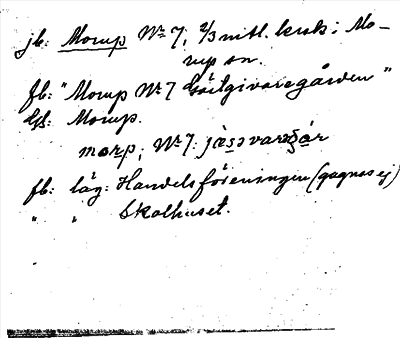 jb: Morup Nr 7, 2/3 mtl. krsk i Mo-
rup sn.
fb: "Morup Nr 7 Gästgivaregården"
Uf: Morup.
morp; Nr 7: jässvaregår
fb: läg: Handelsföreningen (gagnas ej)
" " Skolhuset.